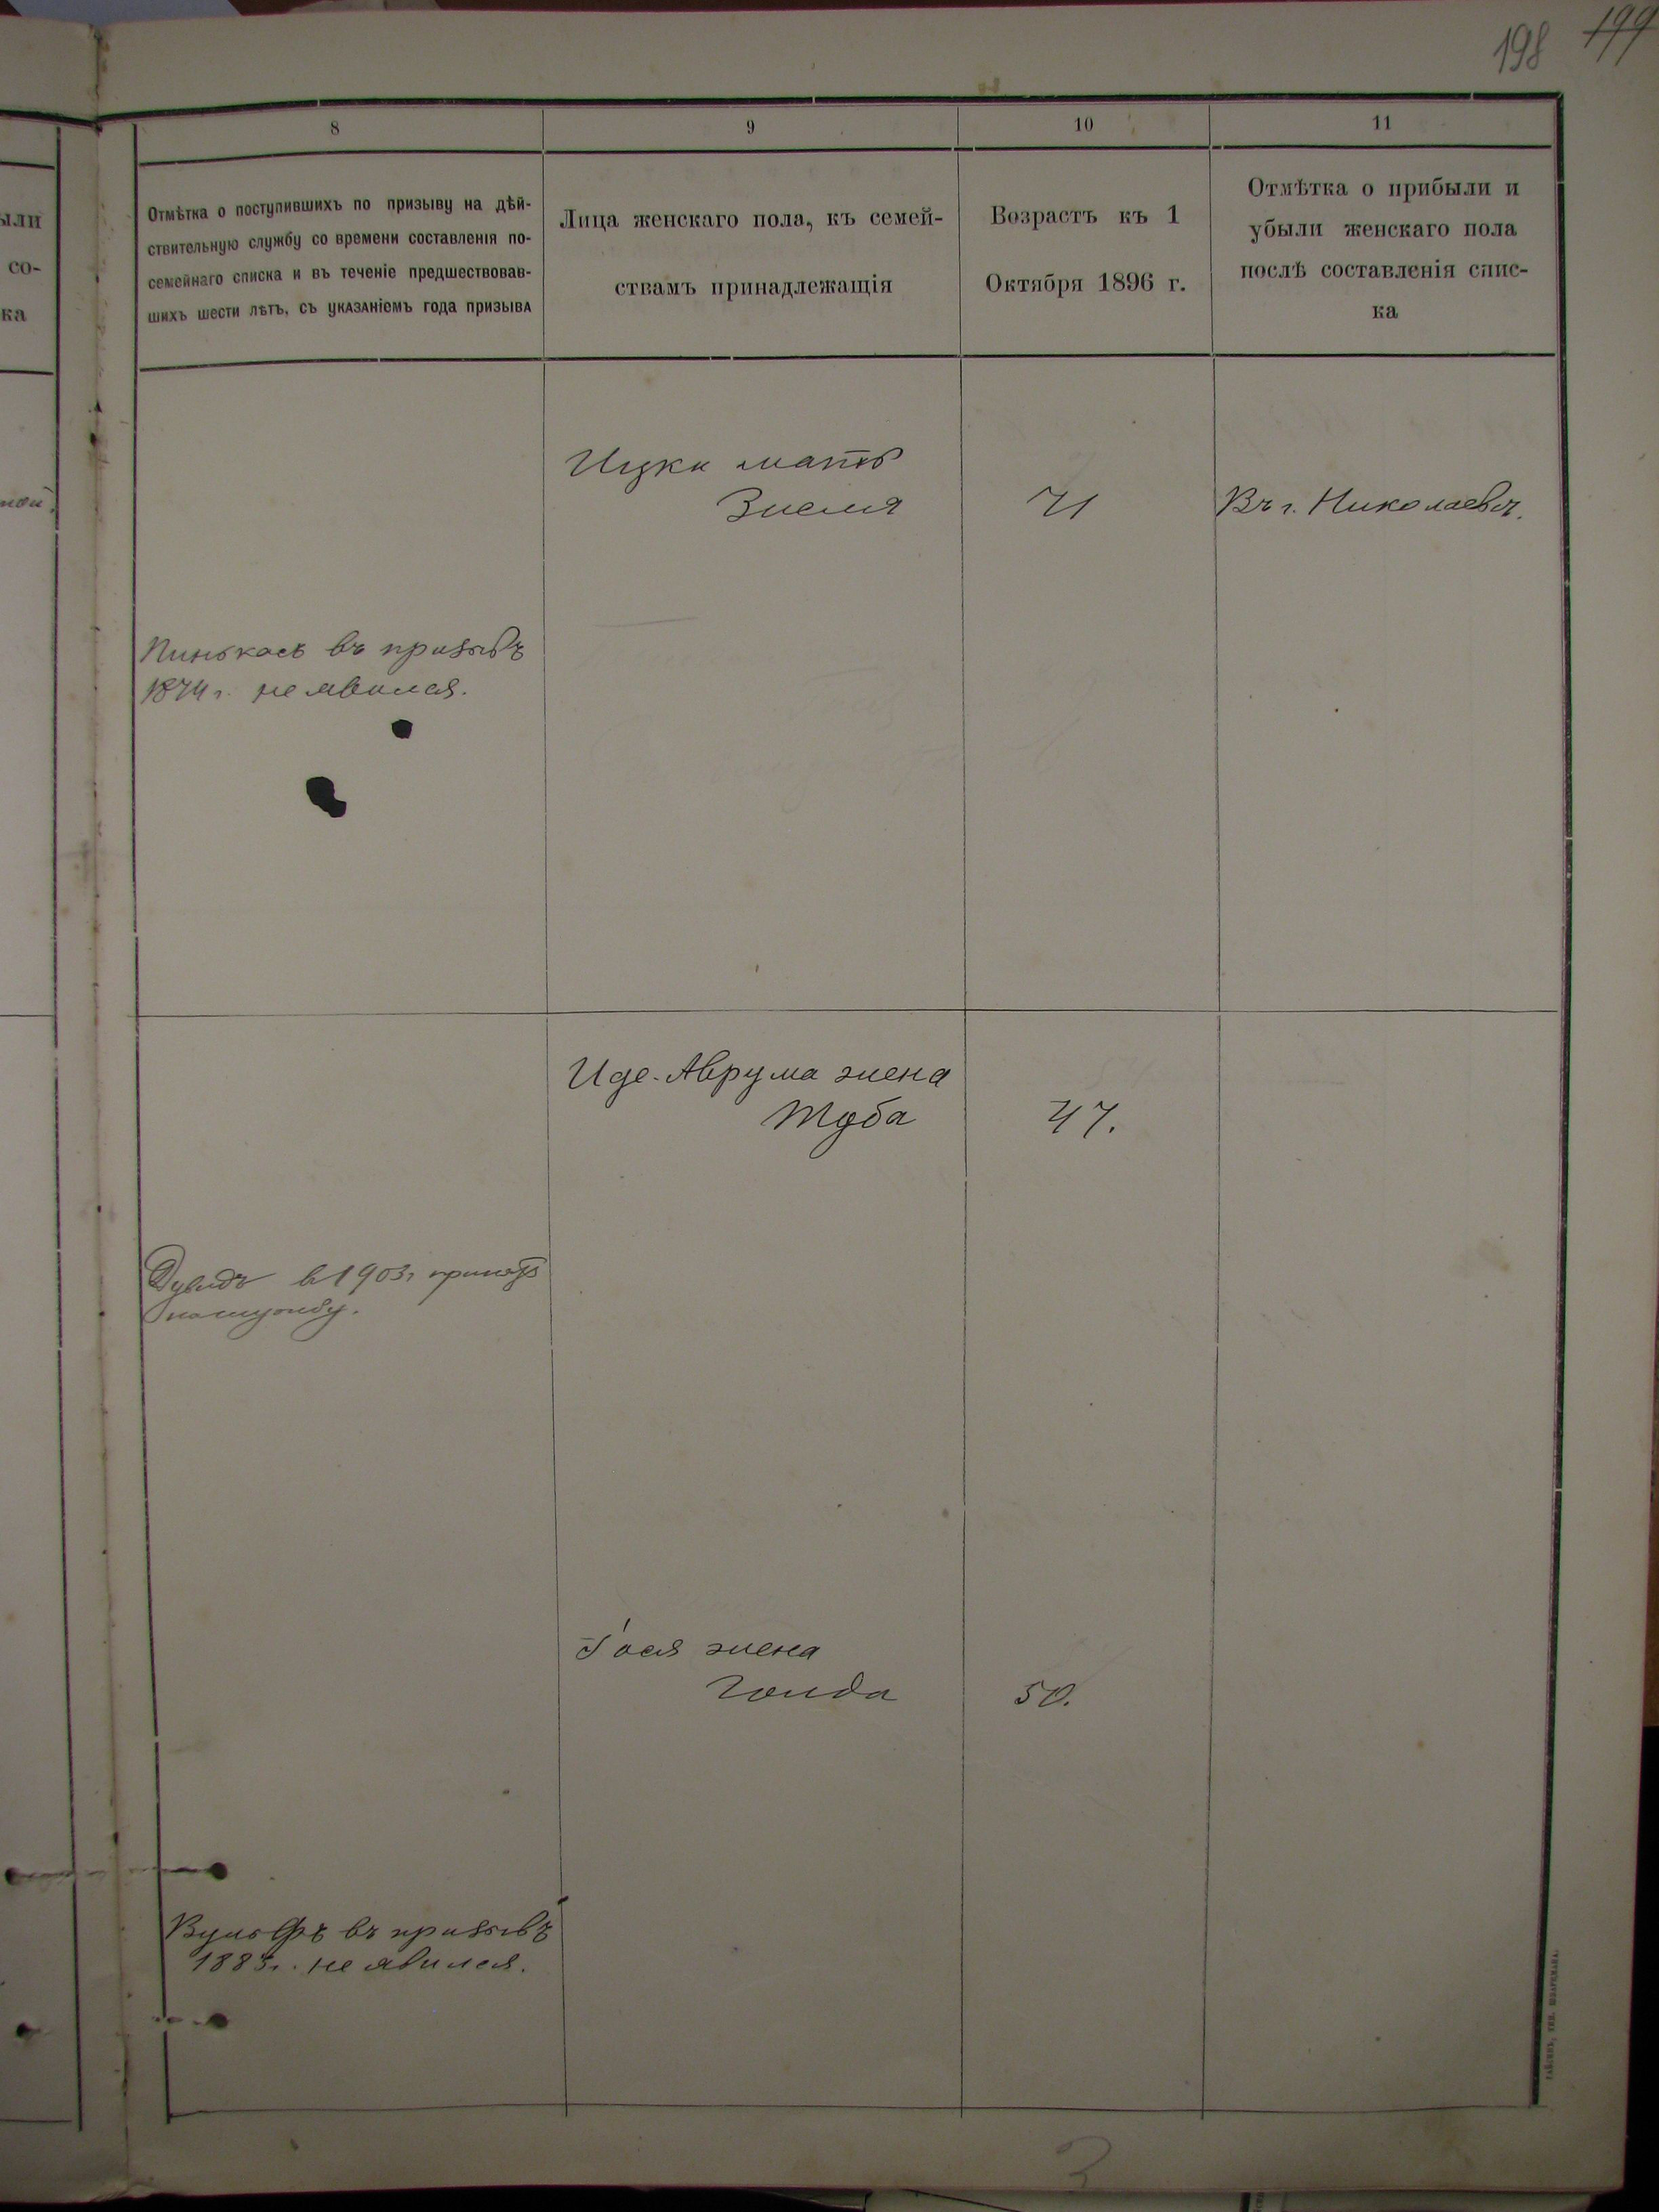 198 199
8
9
10
11
Отмѣтка о поступившихъ по призыву на дѣй-
ствительную службу со времени составленія по-
семейнаго списка и въ теченіе предшествовав-
шихъ шести лѣтъ, съ указаніемъ года призыва
Лица женскаго пола, къ семей-
ствамъ принадлежащія
Возрастъ къ 1
Октября 1896 г.
Отмѣтка о прибыли и
убыли женскаго пола
послѣ составленія спис-
ка
ыли
со-
ка
Ицки мать
Зисля
71
Въ г. Николаевѣ.
Пинькасъ въ призывъ
1874 г. не явился.
Иде-Аврума жена
Туба
47.
Дувидъ в 1903 г. принятъ
на службу.
жена
Голда
50.
Вульфъ въ призывъ
1885 г. не явился.
3